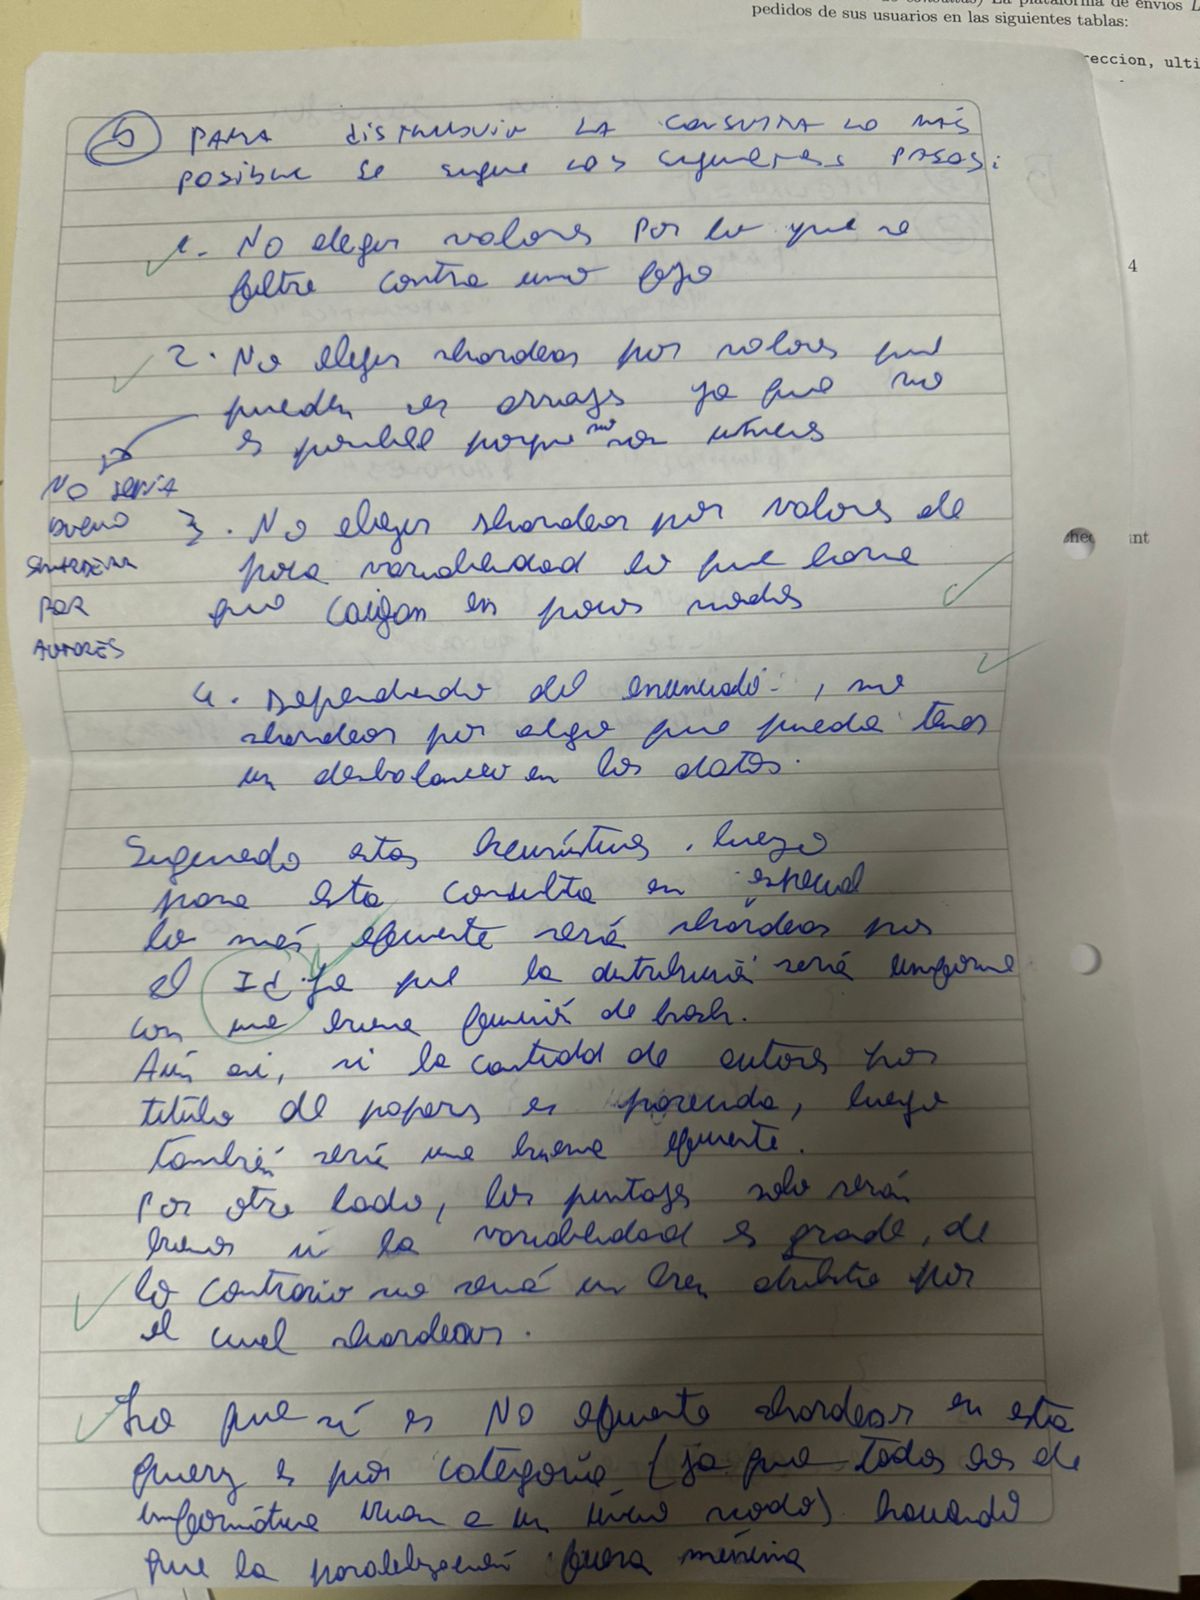 pedidos de sus usuarios en las siguientes tablas:
reccion, ulti
4
chec
int
5 PARA DISTRIBUIR LA CONSULTA LO MÁS
POSIBLE se sigue los siguientes PASOS:
1. No elegir valores por lo que se
filtre contra uno fijo
2. No elegir shardear por valores que
pueden ser arrays ya que no
es posible porque no son únicos
NO SERÍA
BUENO
SHARDEAR
POR
AUTORES
3. No elegir shardear por valores de
poca variabilidad lo que hace
que caigan en pocos nodos
4. Dependiendo del enunciado, no
shardear por algo que pueda tener
un desbalanceo en los datos.
Siguiendo estas heurísticas, luego
para esta consulta en especial
lo más eficiente será shardear por
el Id ya que la distribución será uniforme
con una buena función de hash.
Aún así, si la cantidad de autores por
título de papers es parecida, luego
también sería una buena
Por otro lado, los puntajes solo serán
buenos si la variabilidad es grande, de
lo contrario no será un buen atributo por
el cual shardear.
Lo que sí es NO eficiente shardear en esta
query es por categoría (ya que todos los de
informática irían a un único nodo) haciendo
que la paralelización fuera mínima